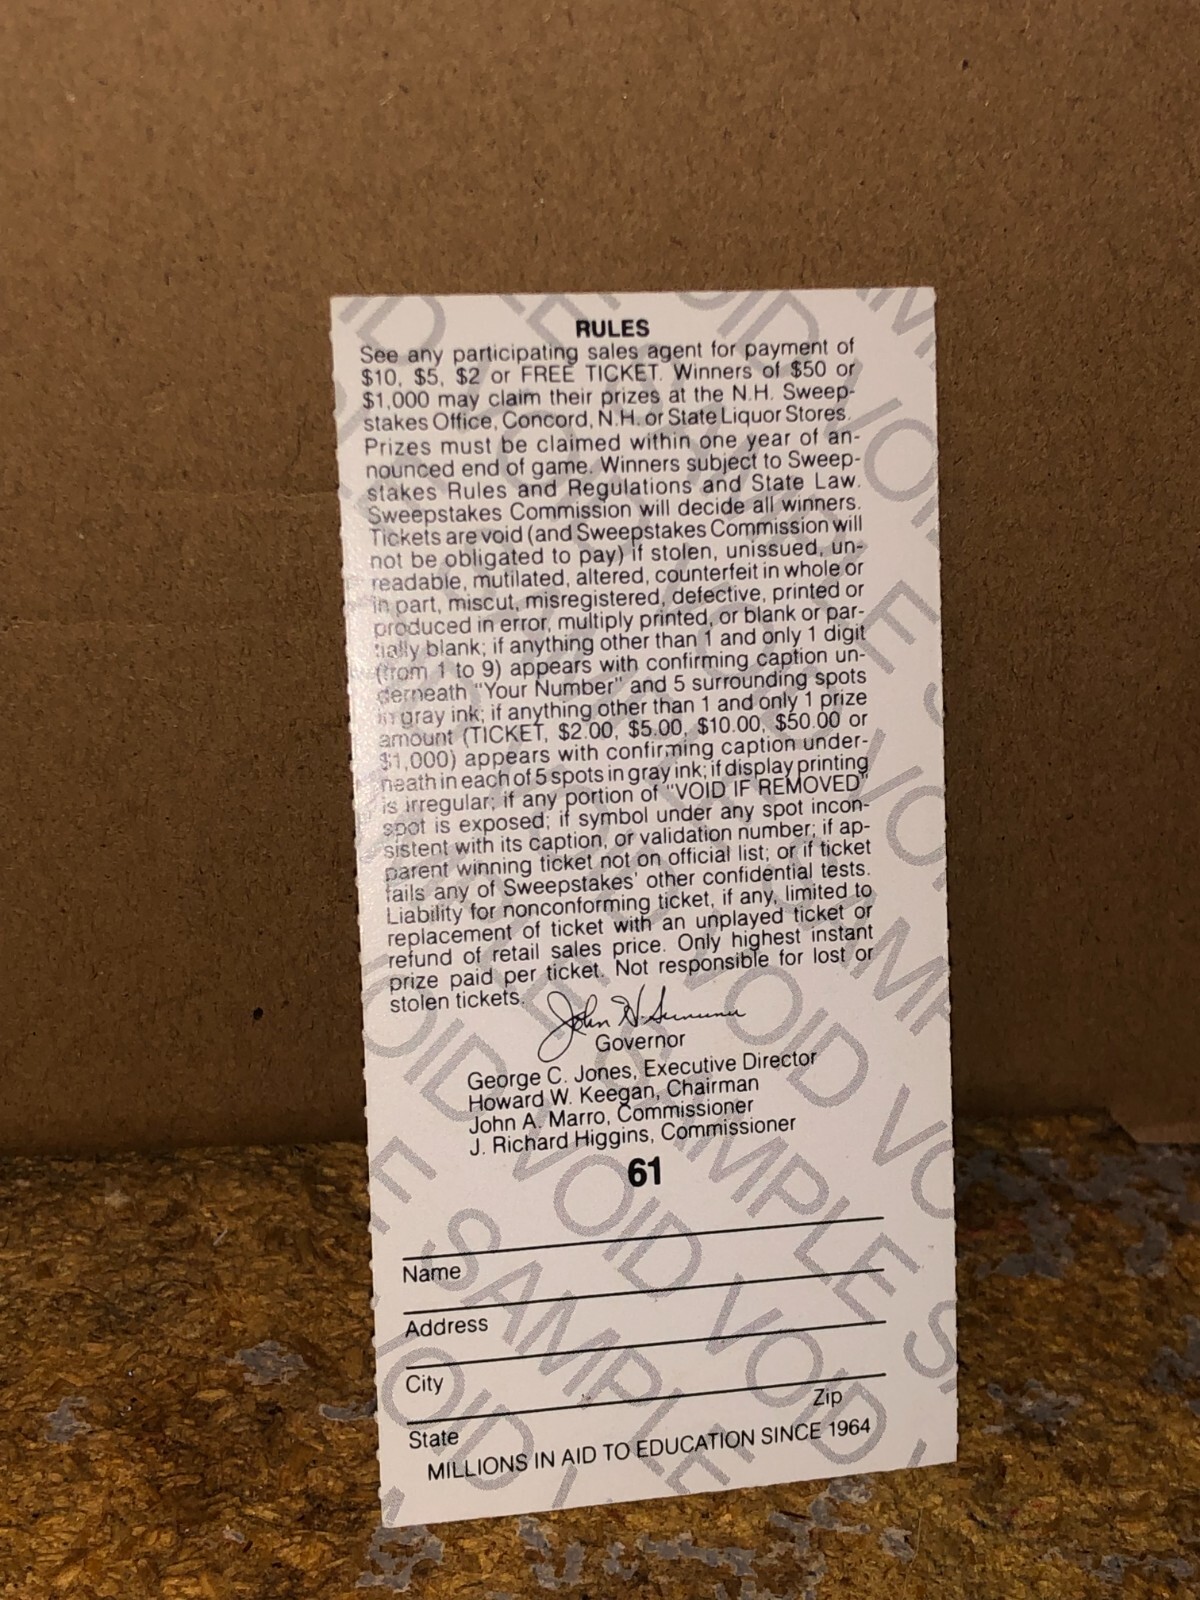 RULES
See any participating sales agent for payment of
$10, $5, $2 or FREE TICKET. Winners of $50 or
$1,000 may claim their prizes at the N.H. Sweep-
stakes Office, Concord, N.H. or State Liquor Stores.
Prizes must be claimed within one year of an-
nounced end of game. Winners subject to Sweep-
stakes Rules and Regulations and State Law.
Sweepstakes Commission will decide all winners.
Tickets are void (and Sweepstakes Commission will
not be obligated to pay) if stolen, unissued, un-
readable, mutilated, altered, counterfeit in whole or
in part, miscut, misregistered, defective, printed or
produced in error, multiply printed, or blank or par-
tially blank; if anything other than 1 and only 1 digit
(from 1 to 9) appears with confirming caption un-
derneath "Your Number" and 5 surrounding spots
in gray ink; if anything other than 1 and only 1 prize
amount (TICKET, $2.00, $5.00, $10.00, $50.00 or
$1,000) appears with confirming caption under-
neath in each of 5 spots in gray ink; if display printing
is irregular; if any portion of "VOID IF REMOVED"
spot is exposed; if symbol under any spot incon-
sistent with its caption, or validation number; if ap-
parent winning ticket not on official list; or if ticket
fails any of Sweepstakes' other confidential tests.
Liability for nonconforming ticket, if any, limited to
replacement of ticket with an unplayed ticket or
refund of retail sales price. Only highest instant
prize paid per ticket. Not responsible for lost or
stolen tickets.
John H. Sununu
Governor
George C. Jones, Executive Director
Howard W. Keegan, Chairman
John A. Marro, Commissioner
J. Richard Higgins, Commissioner
61
Name
Address
City
State Zip
MILLIONS IN AID TO EDUCATION SINCE 1964
VOID SAMPLE VOID SAMPLE